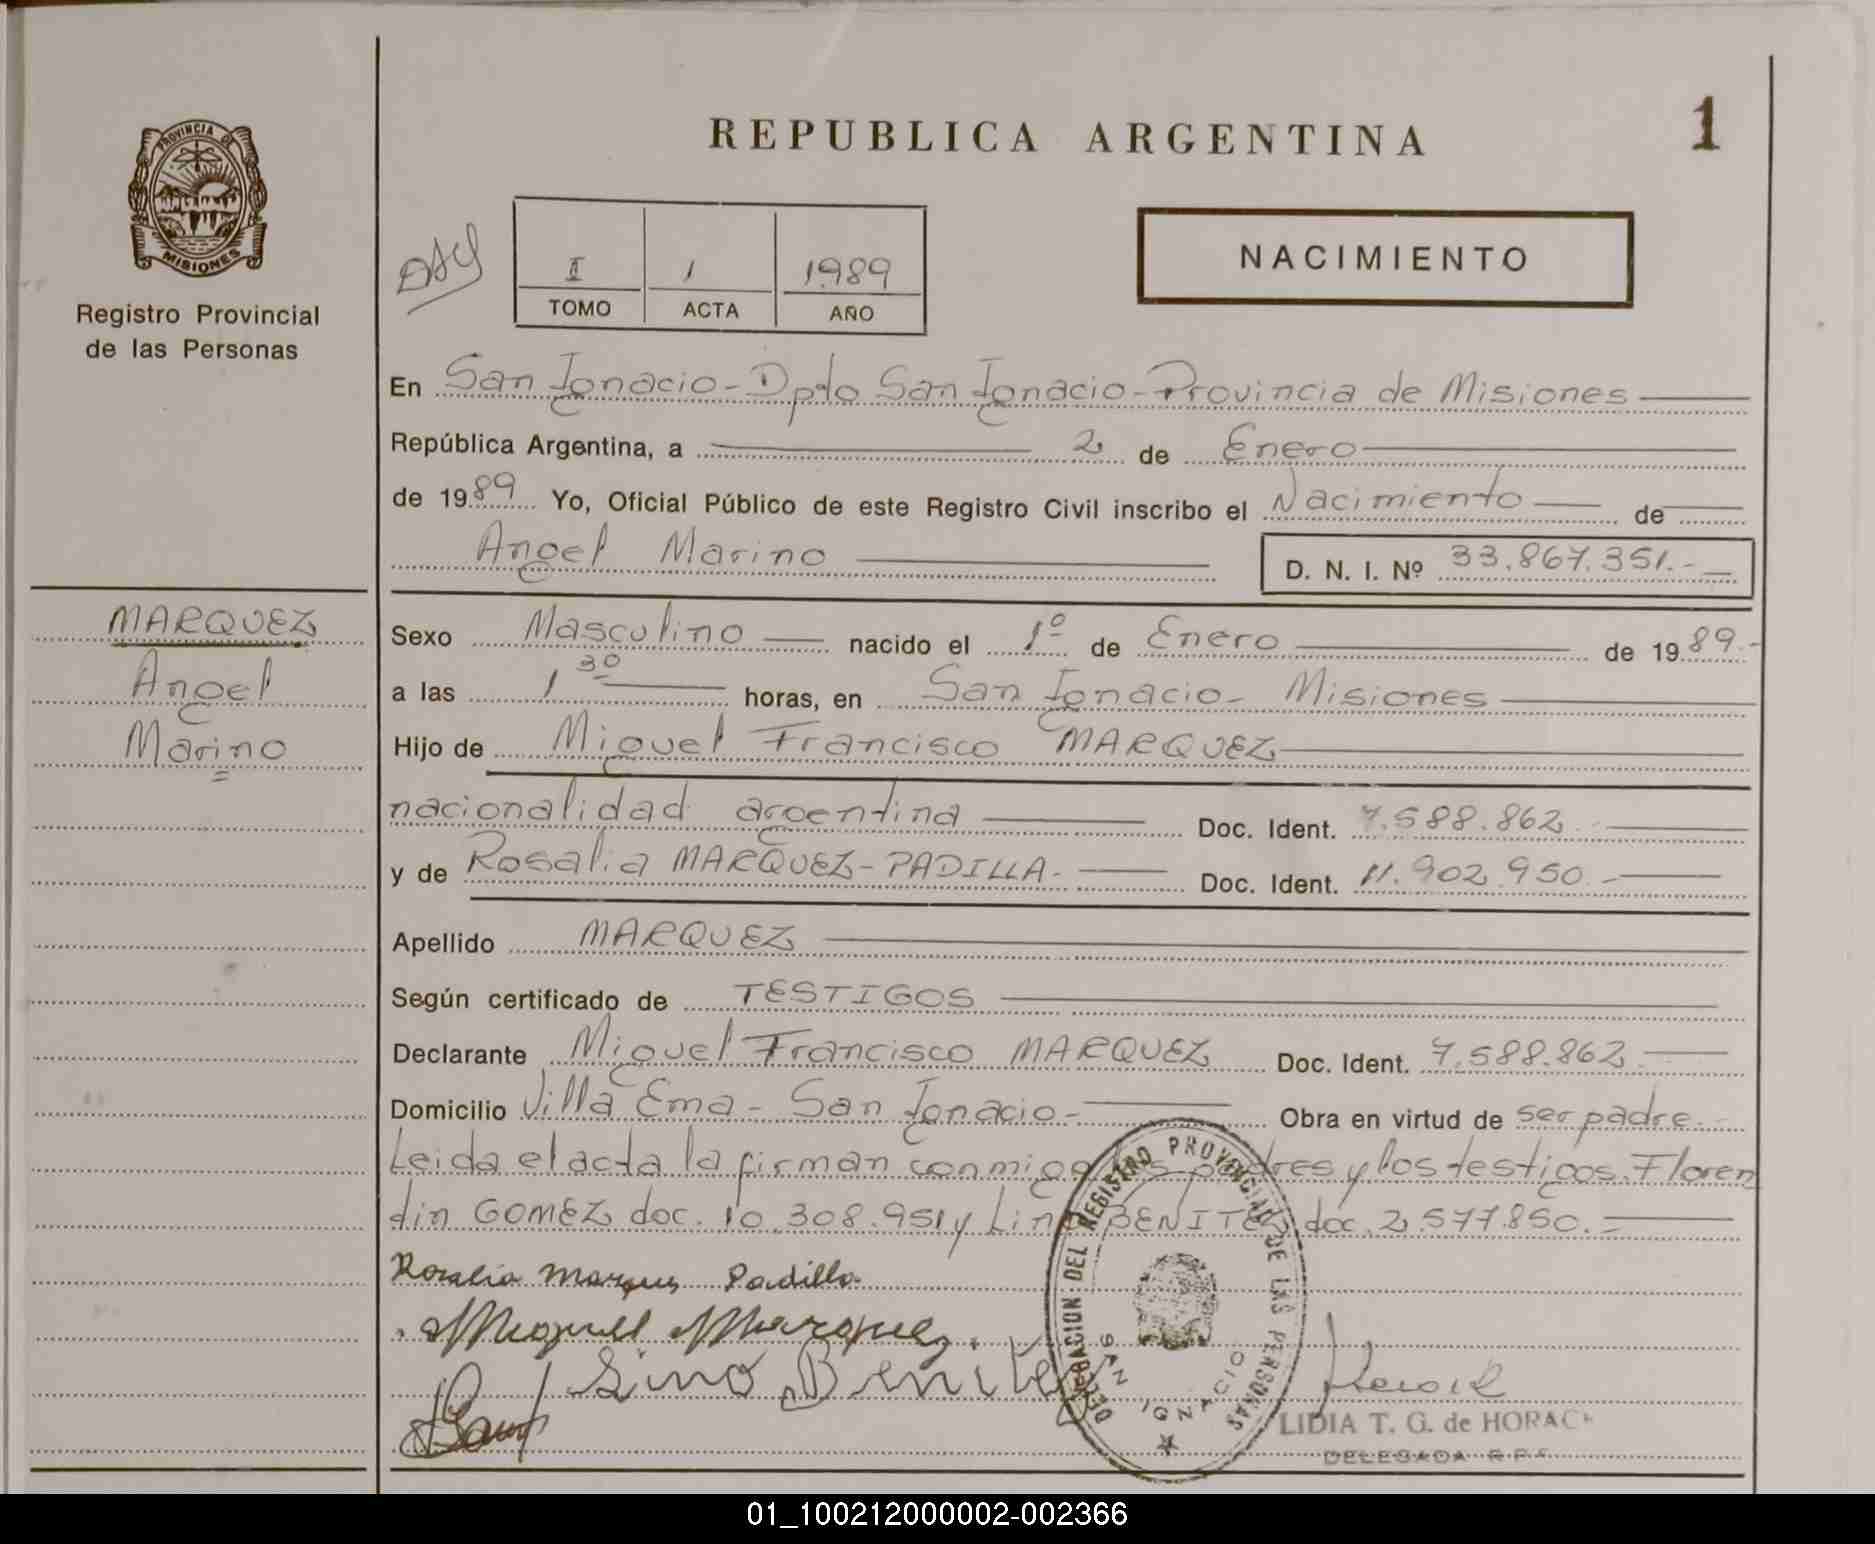 REPUBLICA ARGENTINA
1
PROVINCIA DE
MISIONES
Registro Provincial
de las Personas
I 1 1989
TOMO ACTA AÑO
NACIMIENTO
En San Ignacio - Dpto San Ignacio - Provincia de Misiones
República Argentina, a 2 de Enero
de 1989 Yo, Oficial Público de este Registro Civil inscribo el Nacimiento de
Angel Marino D. N. I. Nº 33.867.351.-
MARQUEZ
Angel
Marino
Sexo Masculino nacido el 1º de Enero de 1989.-
a las 1 30 horas, en San Ignacio - Misiones
Hijo de Miguel Francisco MARQUEZ
nacionalidad argentina Doc. Ident. 7.588.862
y de Rosalia MARQUEZ - PADILLA. Doc. Ident. 11.902.950.-
Apellido MARQUEZ
Según certificado de TESTIGOS
Declarante Miguel Francisco MARQUEZ Doc. Ident. 7.588.862.
Domicilio Villa Ema - San Ignacio - Obra en virtud de ser padre.
Leida el acta la firman conmigo los padres y los testigos. Floren
din GOMEZ doc. 10.308.951 y Lino BENITEZ doc. 2.577.850.-
Rosalia Marques Padilla
Miguel Marquez
Lino Benitez
DELEGACION DEL REGISTRO PROVINCIAL DE LAS PERSONAS
SAN IGNACIO
LIDIA T. G. de HORAC
DELEGADA R.P.P.
01_100212000002-002366